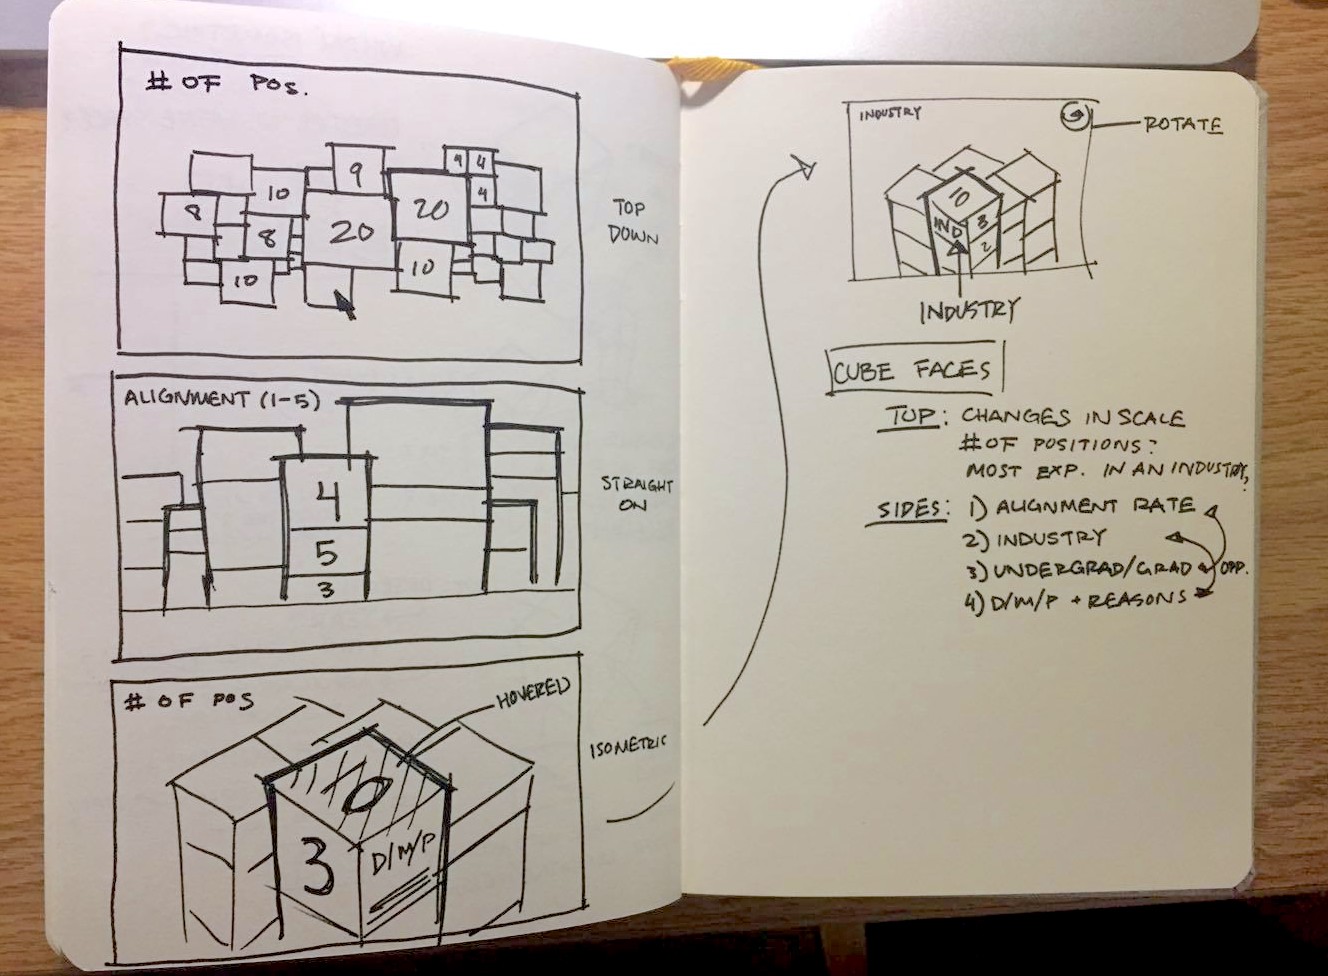 # OF POS.
9
9 4
10
20
4
8
20
8
10
10
TOP
DOWN
ALIGNMENT (1-5)
4
5
3
STRAIGHT
ON
# OF POS
HOVERED
10
3
D/M/P
ISOMETRIC
INDUSTRY
ROTATE
10
IND
3
2
INDUSTRY
CUBE FACES
TOP: CHANGES IN SCALE
# OF POSITIONS:
MOST EXP. IN AN INDUSTRY,
SIDES: 1) ALIGNMENT RATE
2) INDUSTRY
3) UNDERGRAD/GRAD OPP.
4) D/M/P + REASONS